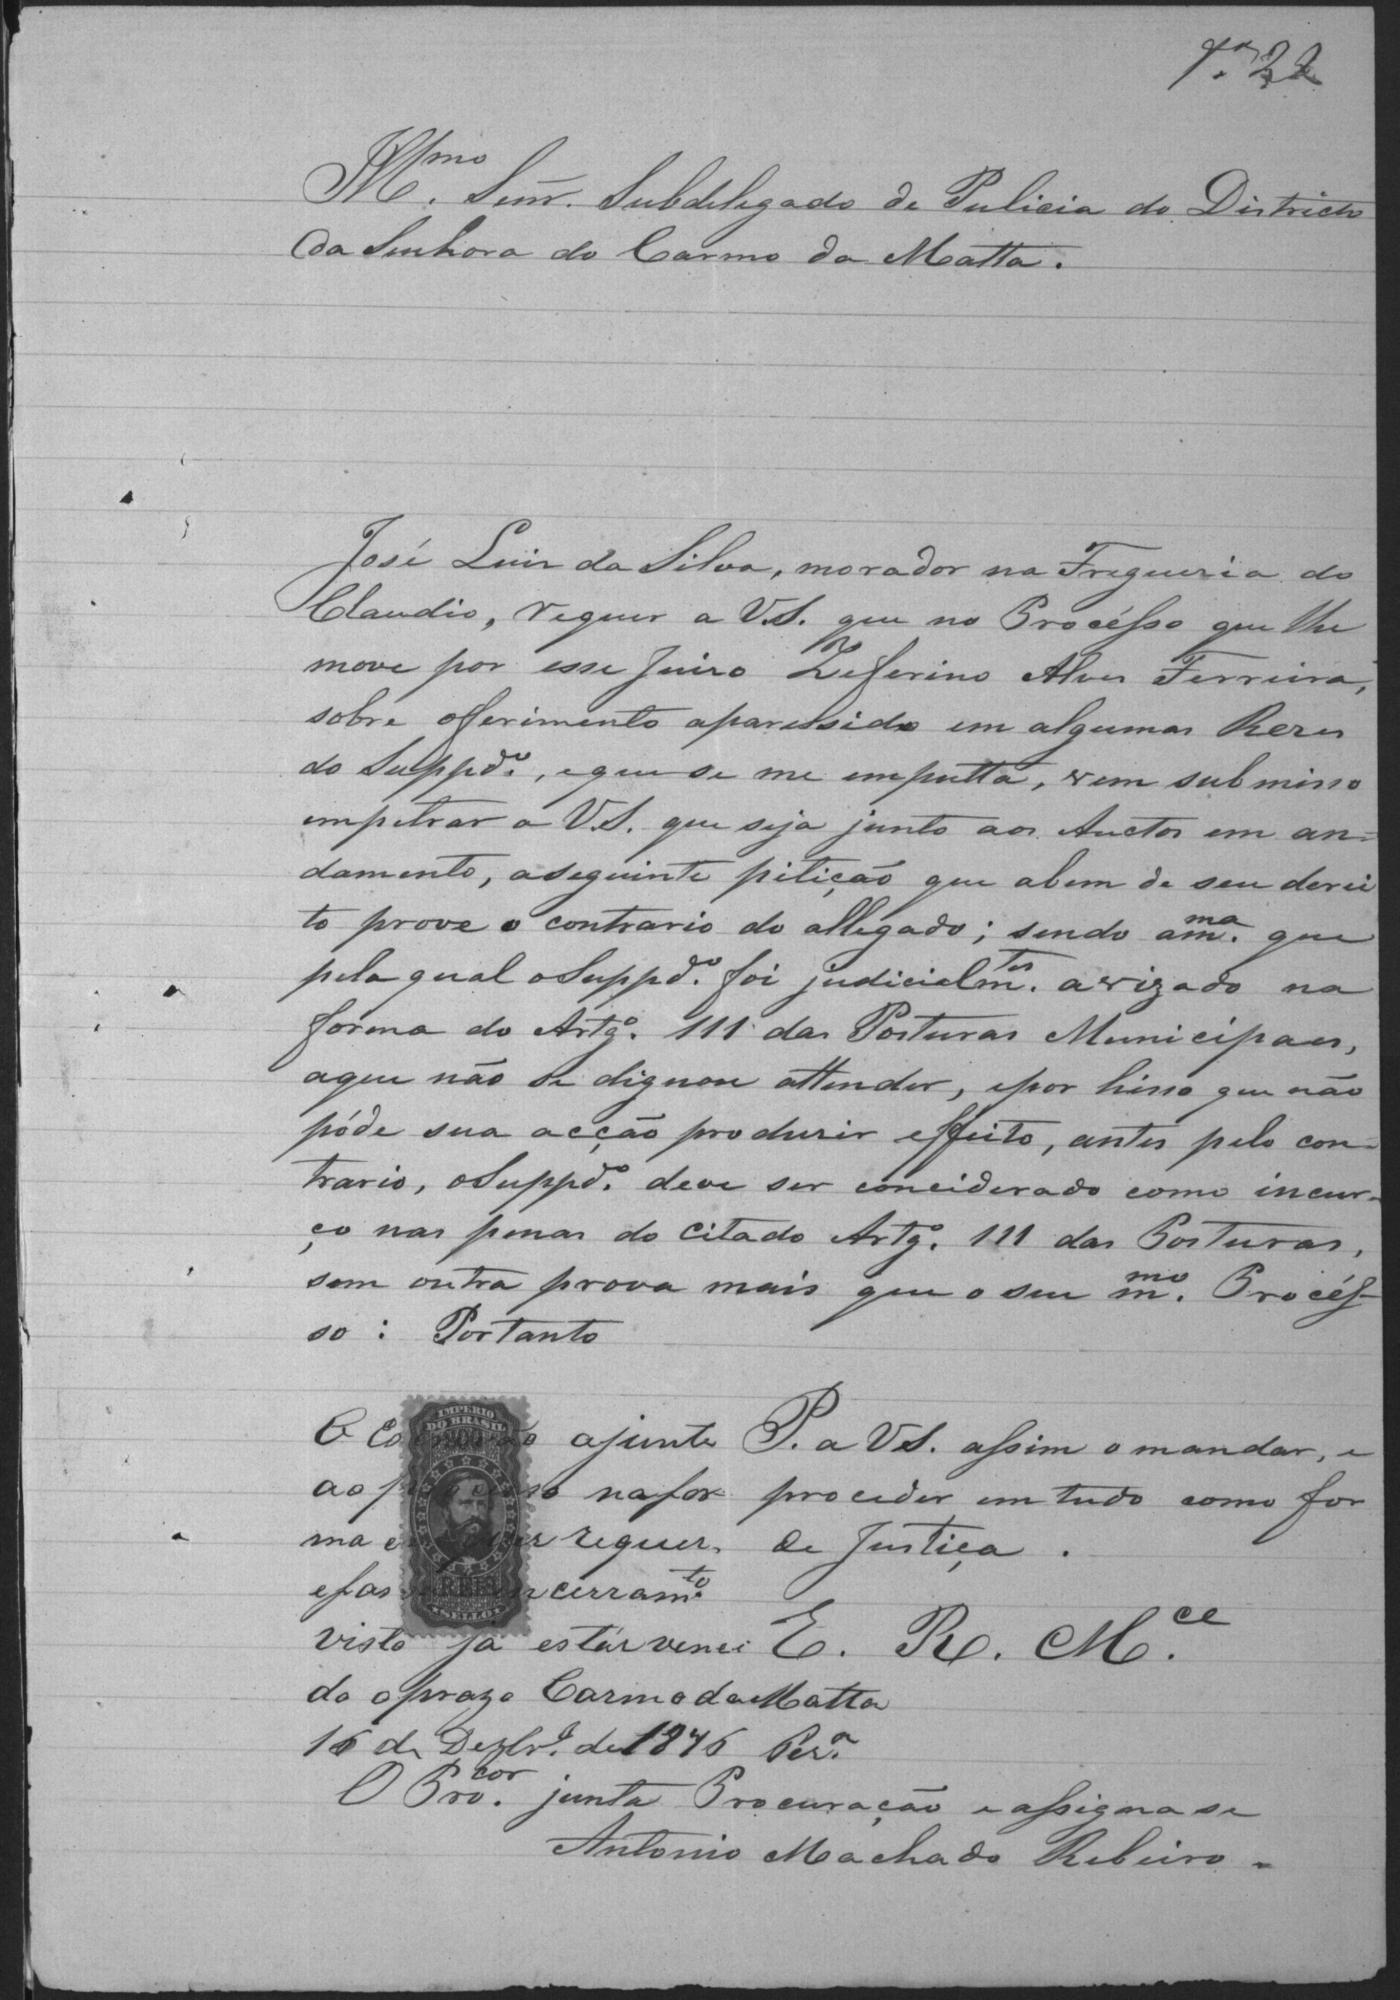 f. 22
Illmo. Senr. Subdelegado de Pulicia do Districto
da Senhora do Carmo da Matta.
José Luis da Silva, morador na Freguezia do
Claudio, requer a V.S. que no Procésso que lhe
move por esse Juizo Zeferino Alves Ferreira,
sobre oferimento aparessido em algumas Rezes
do Suppdo., eque se me emputta, vem submisso
empetrar a V.S. que seja junto aos Auctos em an=
damento, aseguinte pitição que alem de seu derei
to prove o contrario do allegado; sendo amma. que
pela qual oSuppdo. foi judicialmtes. avizado na
forma do Artgo. 111 das Posturas Municipaes,
aque não se dignou attender, epor hisso que não
póde sua acção produzir effeito, antes pelo con=
trario, oSuppdo. deve ser conciderado como incur=
ço nas penas do citado Artgo. 111 das Posturas,
sem outra prova mais que o seu mmo. Procés=
so: Portanto
P. a V.S. assim o mandar, e
proceder em tudo como for
de Justiça.
E. R. Mce.
O Escrivão ajunte
ao nafor
ma requer,
efas encerramto.
visto ja estár venci
do oprazo Carmo da Matta
16 de Dezbro. de 1876 Per.a
IMPERIO
DO BRASIL
200
REIS
SELLO
O Procor. junta Procuração e assignase
Antonio Machado Ribeiro